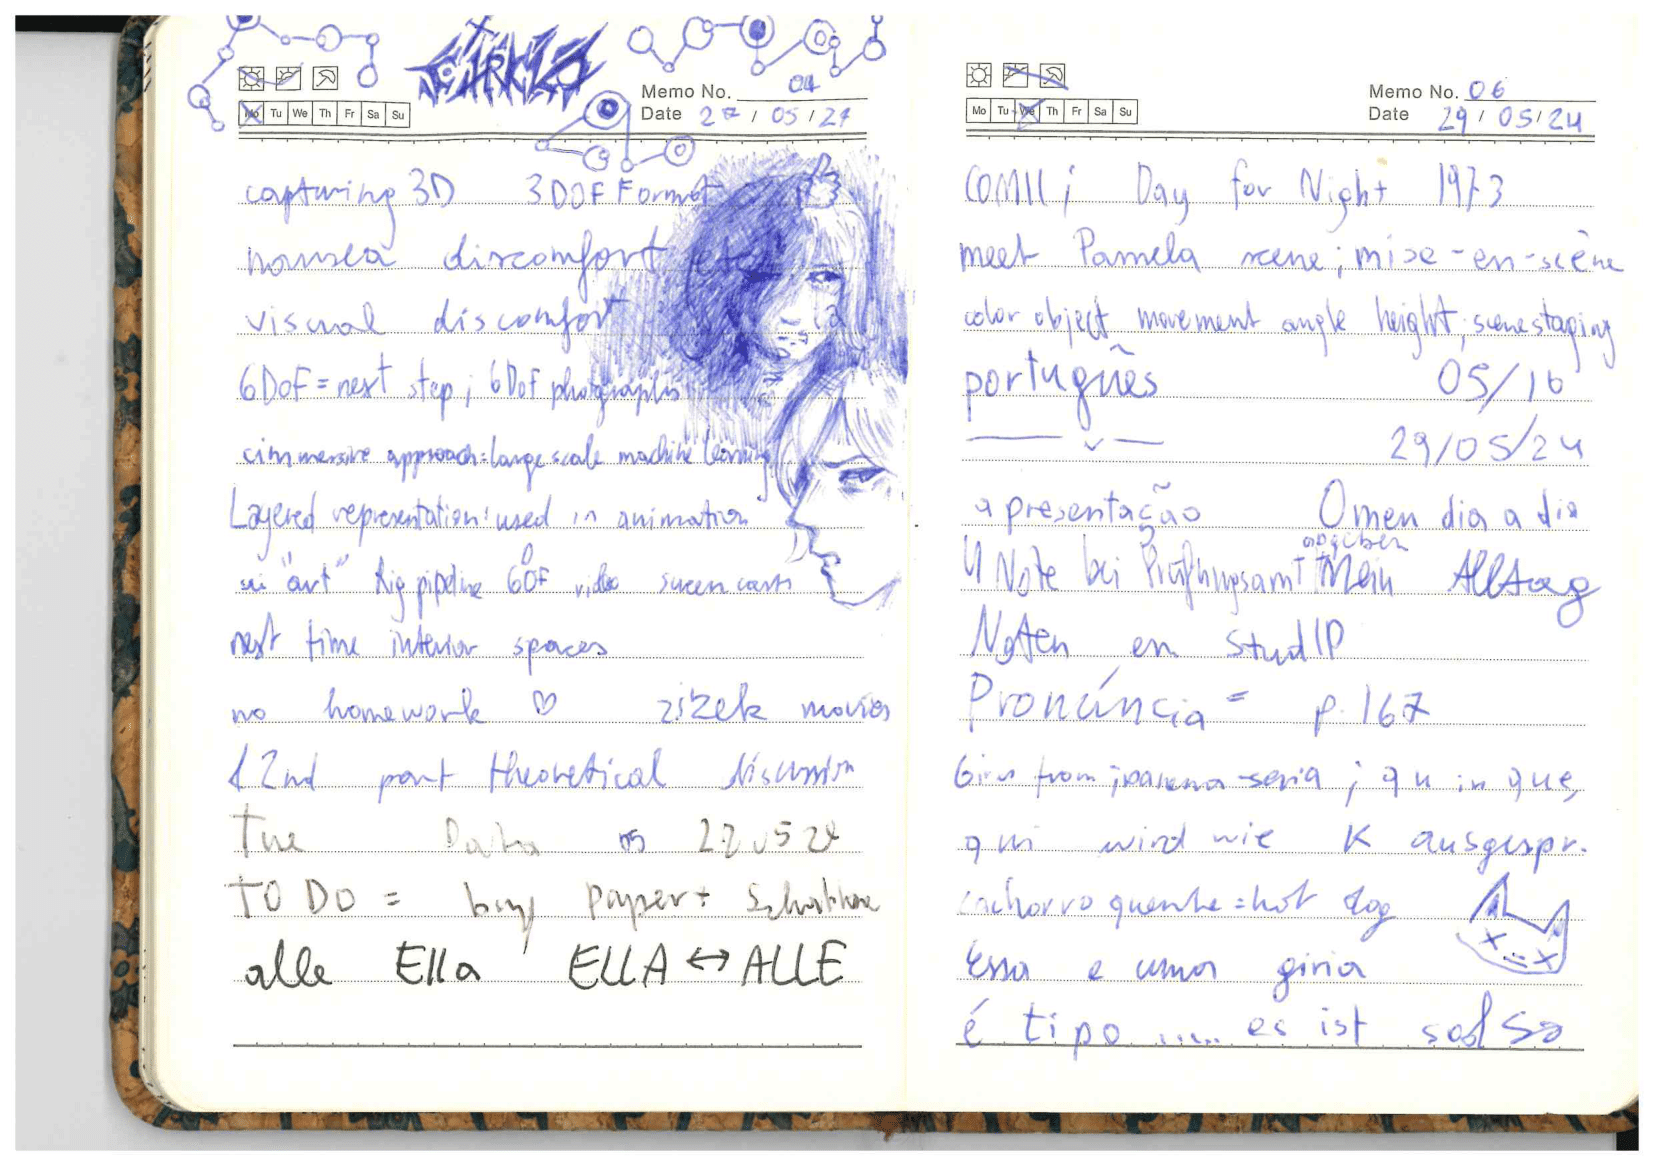 Memo No. 04
Mo Tu We Th Fr Sa Su
Date 27/05/24
capturing 3D 3DOF Format
nausea discomfort etc
visual discomfort
6DoF = next step; 6DoF photographs
immersive approach: large scale machine learning
Layered representation: used in animation
"art" Rig pipeline 6DOF video screen cast
next time interior spaces
no homework ♡ zizek movies
2nd part theoretical discussion
The
TO DO = buy paper +
alle Ella ELLA ↔ ALLE
Memo No. 06
Mo Tu We Th Fr Sa Su
Date 29/05/24
Day for Night 1973
meet Pamela scene; mise-en-scène
color object movement angle height; scene staging
portugũes 05/16
29/05/24
apresentação O meu dia a dia
abgeben
4 Note bei Prüfungsamt Mein Alltag
Noten en StudIP
Pronúncia = p. 167
from; qu in que,
qui wird wie K ausgespr.
cachorro quente = hot dog
Essa e uma giria
é tipo ..... es ist so